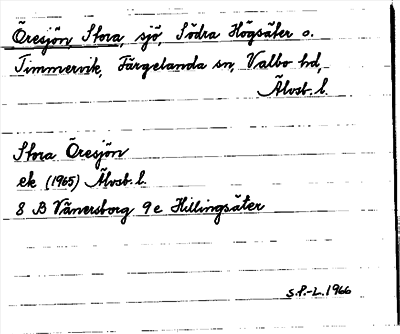 Öresjön, Stora, sjö, Södra Högsäter o.
Timmervik, Färgelanda sn, Valbo hd,
Älvsb. l.
Stora Öresjön
ek (1965) Älvsb. l.
8 B Vänersborg 9e Hillingsäter
S.P.-L. 1966